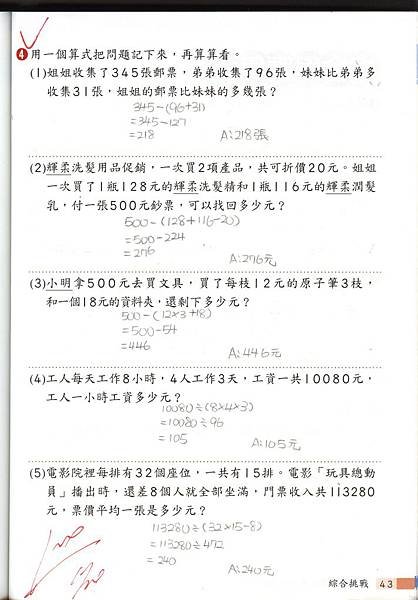 4 用一個算式把問題記下來，再算算看。
(1)姐姐收集了345張郵票，弟弟收集了96張，妹妹比弟弟多
收集31張，姐姐的郵票比妹妹的多幾張？
345-(96+31)
=345-127
=218 A:218張
(2)輝柔洗髮用品促銷，一次買2項產品，共可折價20元。姐姐
一次買了1瓶128元的輝柔洗髮精和1瓶116元的輝柔潤髮
乳，付一張500元鈔票，可以找回多少元？
500-(128+116-20)
=500-224
=276 A:276元
(3)小明拿500元去買文具，買了每枝12元的原子筆3枝，
和一個18元的資料夾，還剩下多少元？
500-(12×3+18)
=500-54
=446 A:446元
(4)工人每天工作8小時，4人工作3天，工資一共10080元，
工人一小時工資多少元？
10080÷(8×4×3)
=10080÷96
=105 A:105元
(5)電影院裡每排有32個座位，一共有15排。電影「玩具總動
員」播出時，還差8個人就全部坐滿，門票收入共113280
元，票價平均一張是多少元？
113280÷(32×15-8)
=113280÷472
=240 A:240元
綜合挑戰 43